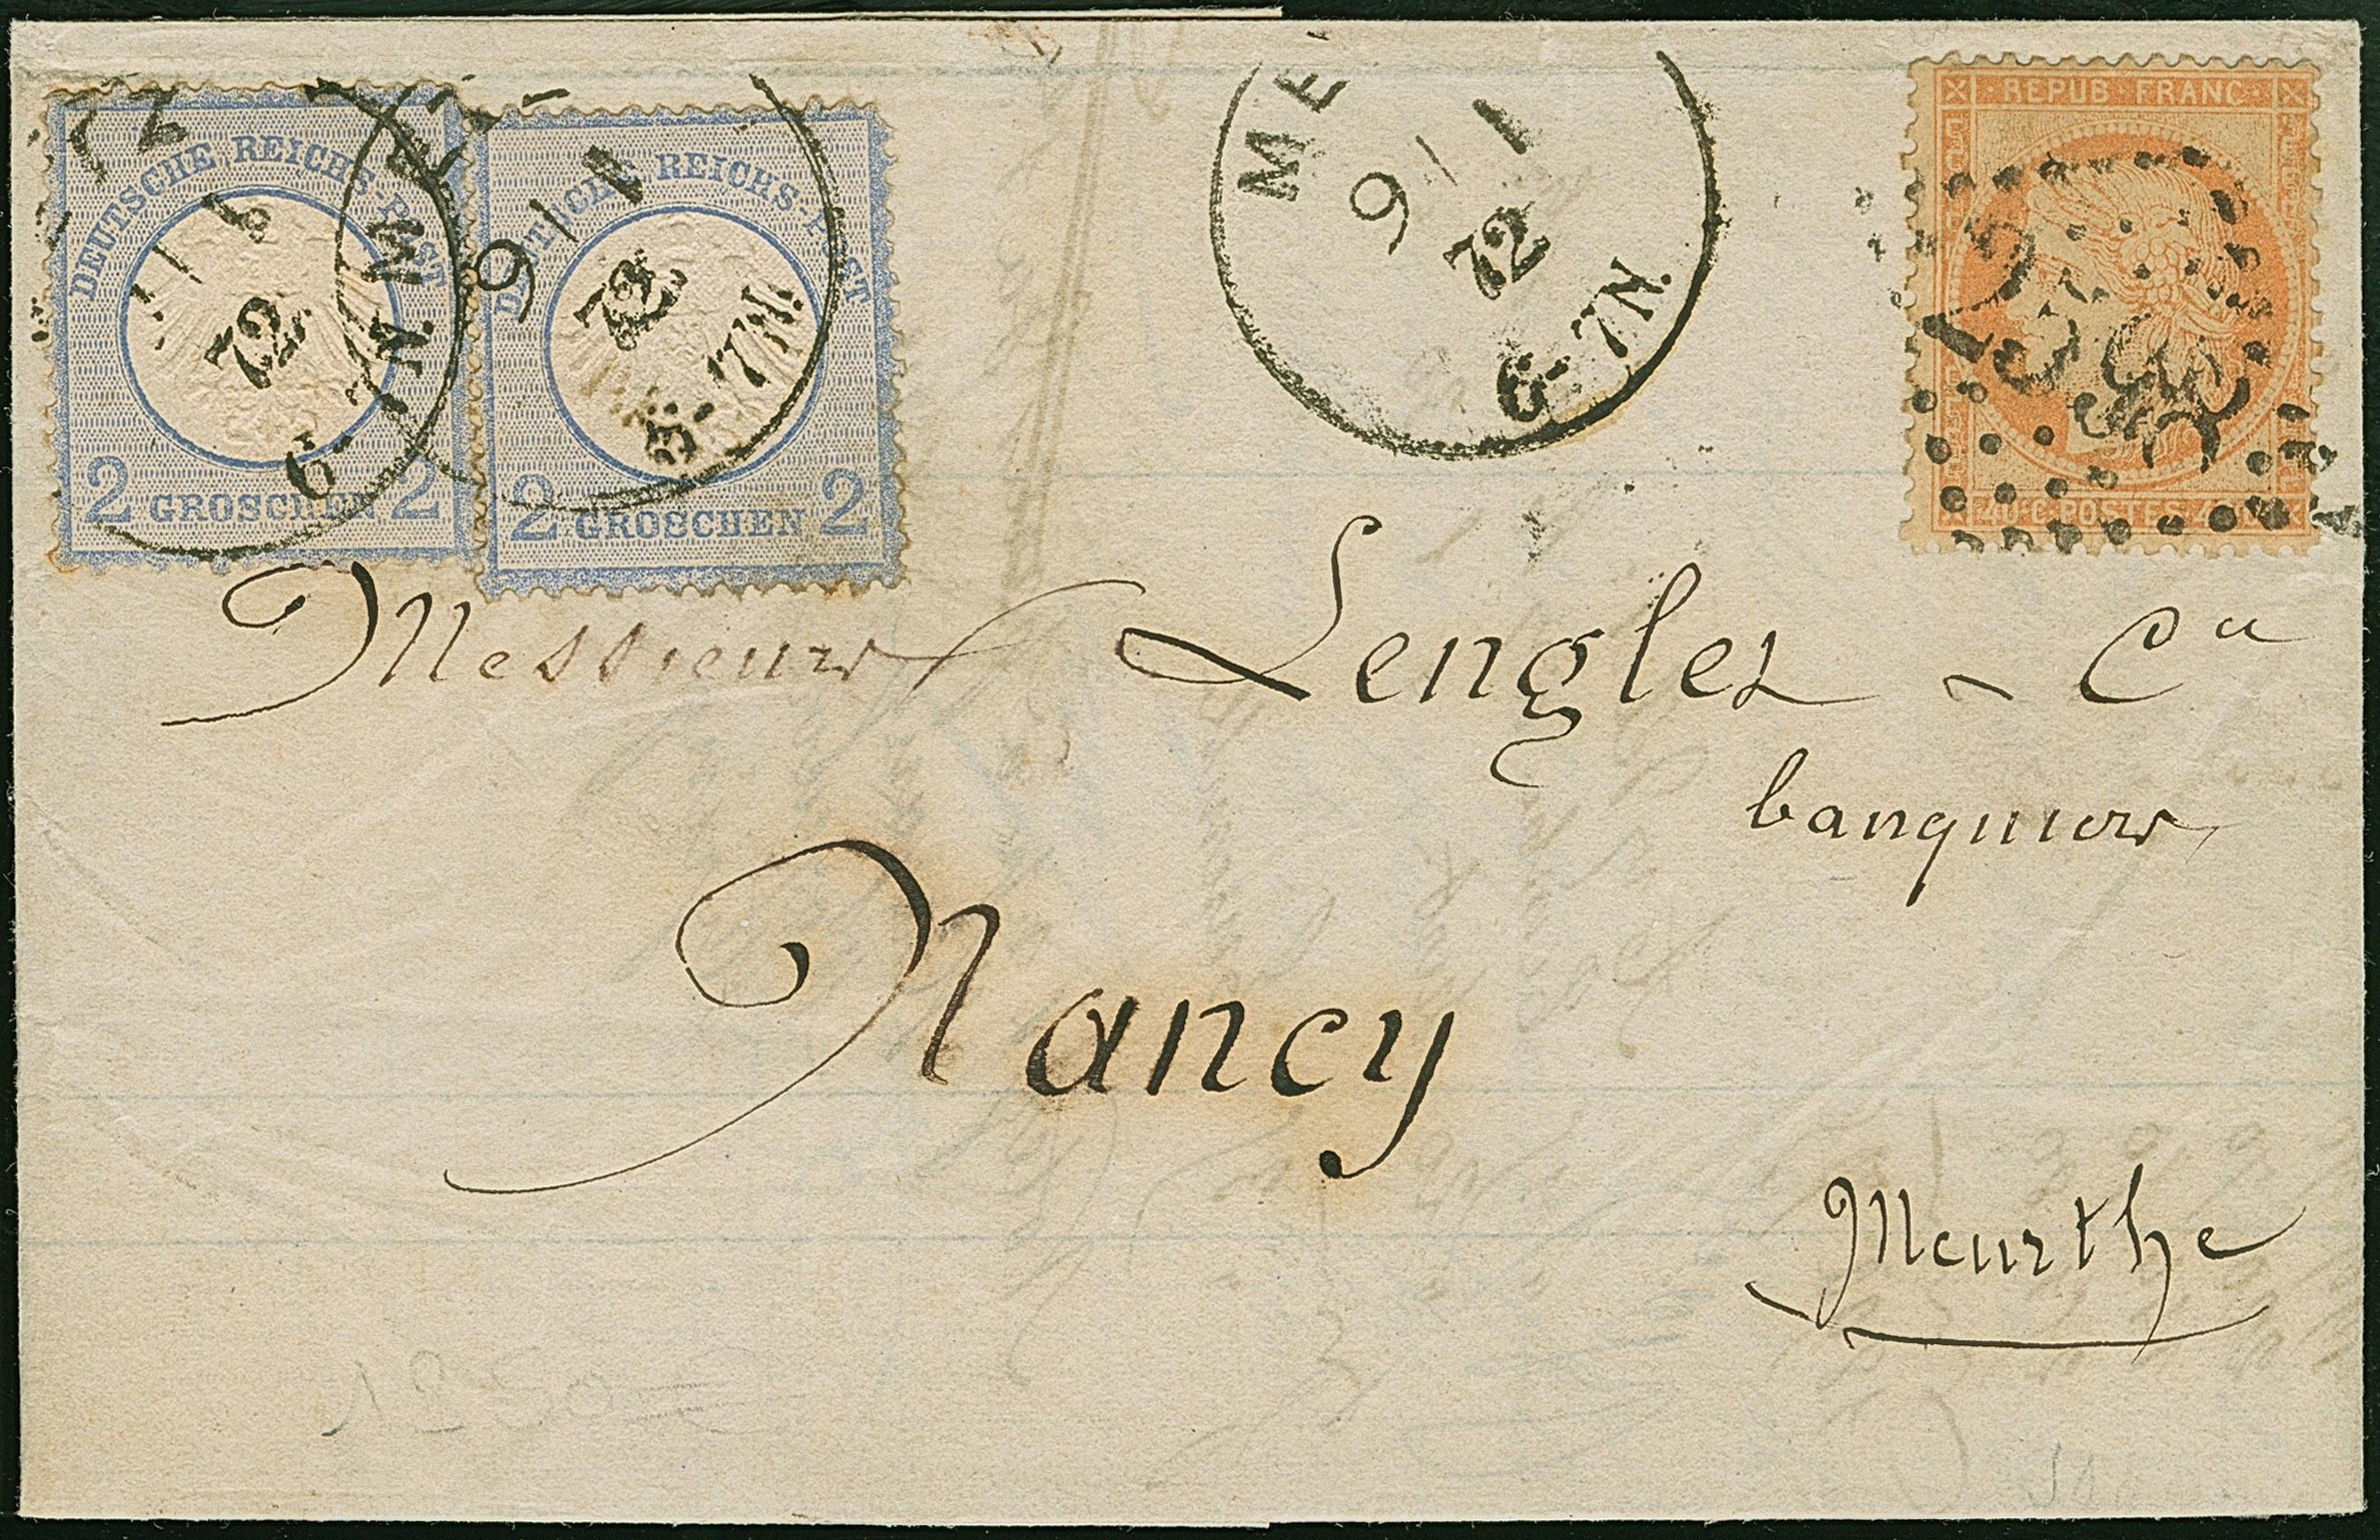 DEUTSCHE REICHS-POST
72
2 GROSCHEN 2
DEUTSCHE REICHS-POST
9/1
72
6-7N.
2 GROSCHEN 2
ME
9/1
72
6-7N.
REPUB·FRANC·
40·C·POSTES·40·C
Messieurs Lenglet & Cie
banquiers
Nancy
Meurthe